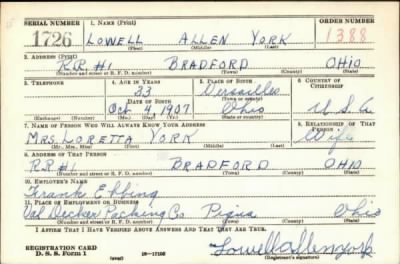 SERIAL NUMBER 1. NAME (Print) ORDER NUMBER
1726 LOWELL ALLEN YORK 1388
(First) (Middle) (Last)
2. ADDRESS (Print)
R.R. #1 BRADFORD OHIO
(Number and street or R. F. D. number) (Town) (County) (State)
3. TELEPHONE 4. AGE IN YEARS 5. PLACE OF BIRTH 6. COUNTRY OF CITIZENSHIP
33 Versailles
DATE OF BIRTH (Town or county)
Oct 4, 1907 Ohio U.S.A.
(Exchange) (Number) (Mo.) (Day) (Yr.) (State or country)
7. NAME OF PERSON WHO WILL ALWAYS KNOW YOUR ADDRESS 8. RELATIONSHIP OF THAT PERSON
MRS. LORETTA YORK Wife
(Mr., Mrs., Miss) (First) (Middle) (Last)
9. ADDRESS OF THAT PERSON
R.R. #1 BRADFORD OHIO
(Number and street or R. F. D. number) (Town) (County) (State)
10. EMPLOYER'S NAME
Frank
11. PLACE OF EMPLOYMENT OR BUSINESS
Val Decker Packing Co Piqua Ohio
(Number and street or R. F. D. number) (Town) (County) (State)
I AFFIRM THAT I HAVE VERIFIED ABOVE ANSWERS AND THAT THEY ARE TRUE.
REGISTRATION CARD
D. S. S. Form 1 16—17105 Lowell Allen York
(over) (Registrant's signature)